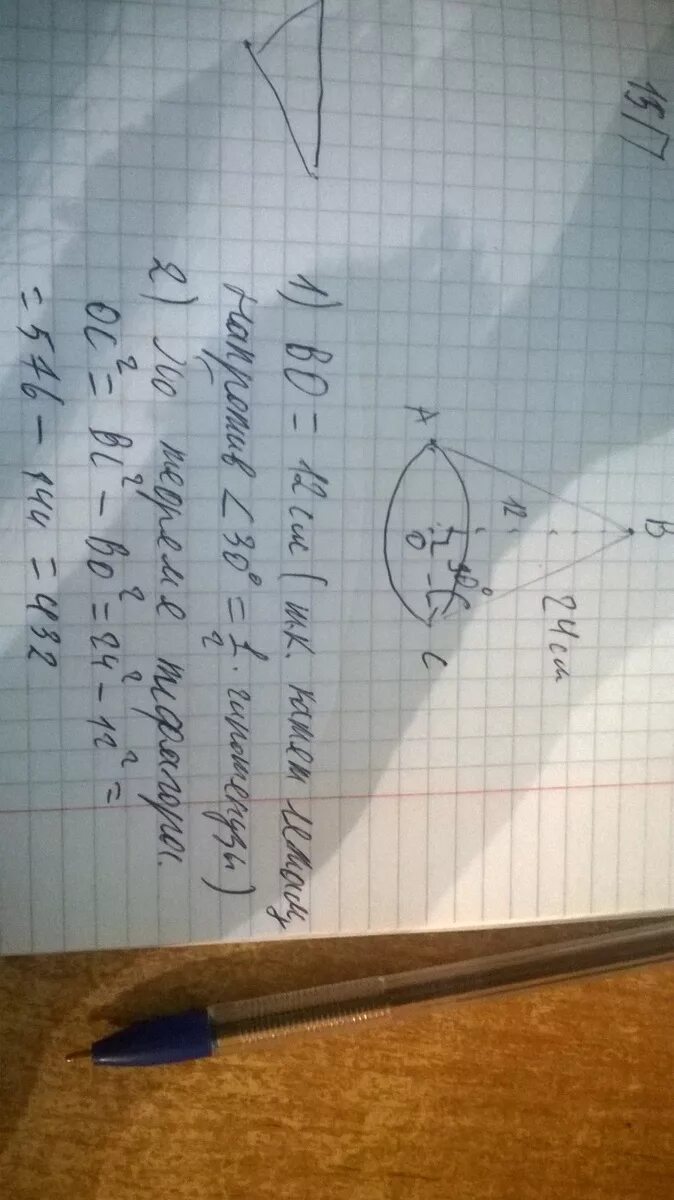 B
24 см
12
30°
A
O
C
1) BO = 12 см (т.к. катет лежащ
напротив <30° = 1/2 · гипотенузы)
2) По теореме пифагора.
OC² = BC² - BO² = 24² - 12² =
= 576 - 144 = 432